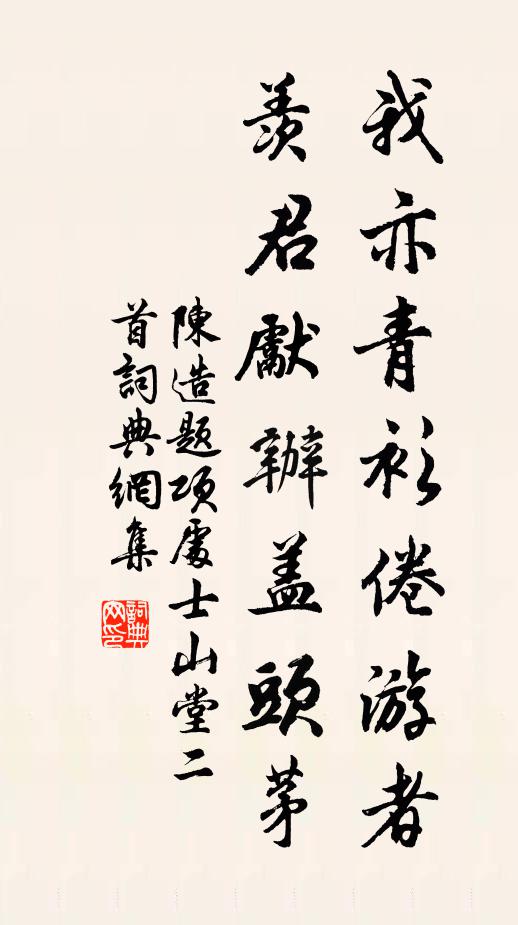 我亦青衫倦游者
羨君獻辦盖頭茅
陳造題項處士山堂二
首詞典網集
詞典
网印